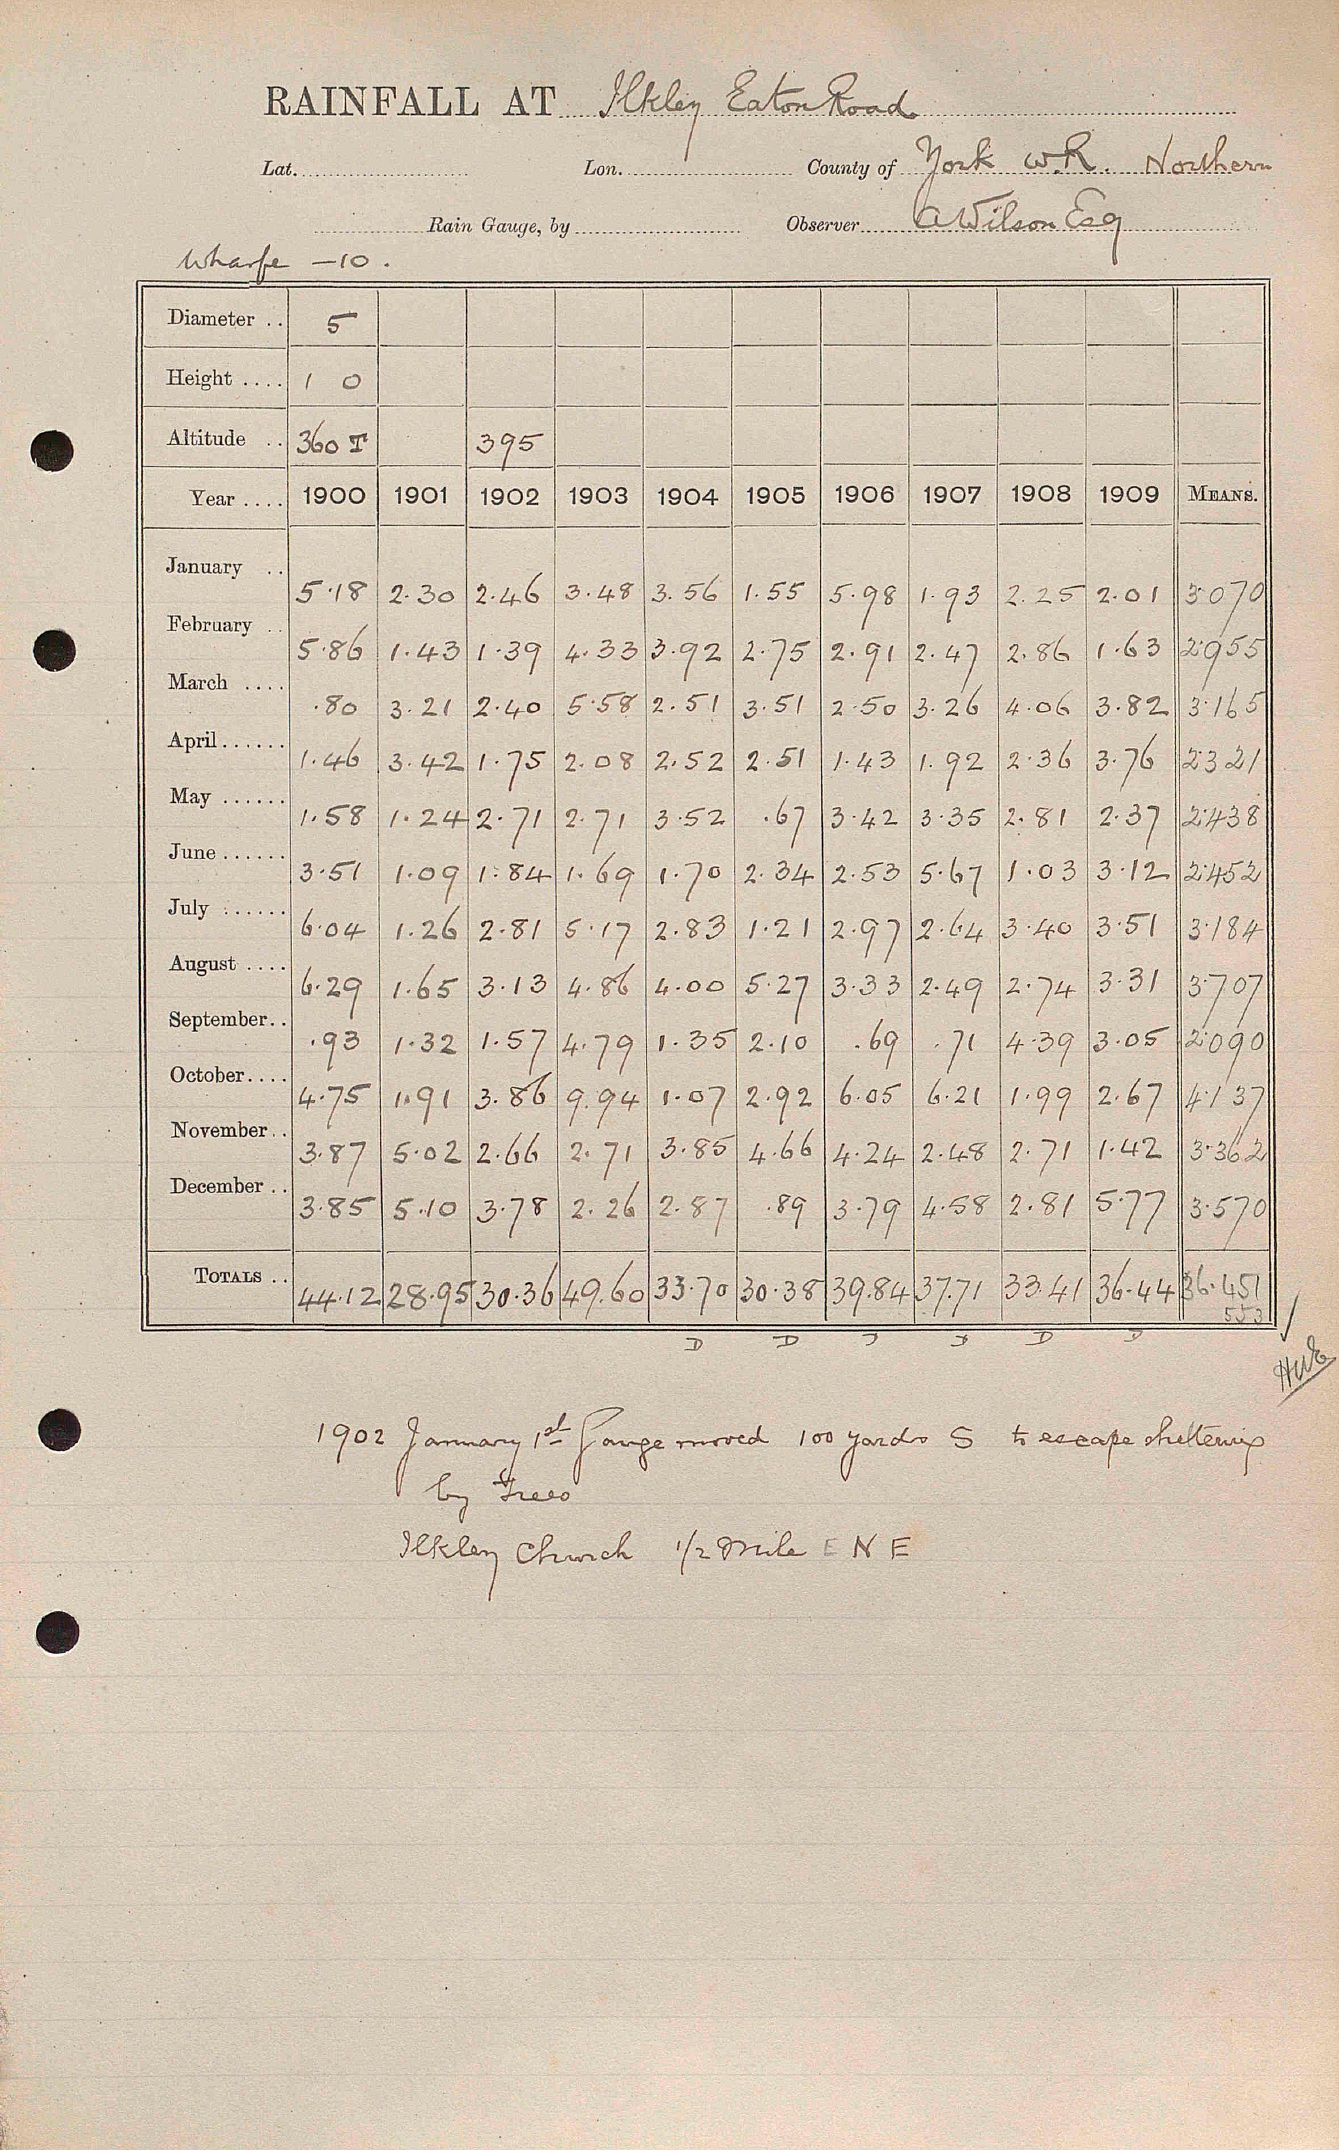 RAINFALL AT Ilkley Eaton Road
Lat. Lon. County of York W.R. Northern
Rain Gauge, by Observer A Wilson Esq
Wharfe –10.
Diameter .. 5
Height .... 1 0
Altitude .. 360 T 395
Year .... 1900 1901 1902 1903 1904 1905 1906 1907 1908 1909 MEANS.
January .. 5.18 2.30 2.46 3.48 3.56 1.55 5.98 1.93 2.25 2.01 3.070
February .. 5.86 1.43 1.39 4.33 3.92 2.75 2.91 2.47 2.86 1.63 2.955
March .... .80 3.21 2.40 5.58 2.51 3.51 2.50 3.26 4.06 3.82 3.165
April ...... 1.46 3.42 1.75 2.08 2.52 2.51 1.43 1.92 2.36 3.76 2.321
May ...... 1.58 1.24 2.71 2.71 3.52 .67 3.42 3.35 2.81 2.37 2.438
June ...... 3.51 1.09 1.84 1.69 1.70 2.34 2.53 5.67 1.03 3.12 2.452
July ...... 6.04 1.26 2.81 5.17 2.83 1.21 2.97 2.64 3.40 3.51 3.184
August .... 6.29 1.65 3.13 4.86 4.00 5.27 3.33 2.49 2.74 3.31 3.707
September .. .93 1.32 1.57 4.79 1.35 2.10 .69 .71 4.39 3.05 2.090
October .... 4.75 1.91 3.86 9.94 1.07 2.92 6.05 6.21 1.99 2.67 4.137
November .. 3.87 5.02 2.66 2.71 3.85 4.66 4.24 2.48 2.71 1.42 3.362
December .. 3.85 5.10 3.78 2.26 2.87 .89 3.79 4.58 2.81 5.77 3.570
TOTALS .. 44.12 28.95 30.36 49.60 33.70 30.38 39.84 37.71 33.41 36.44 36.451
553
D D D D D D
1902 January 1st Gauge moved 100 yards S to escape sheltering
by Trees
Ilkley Church 1/2 Mile E N E